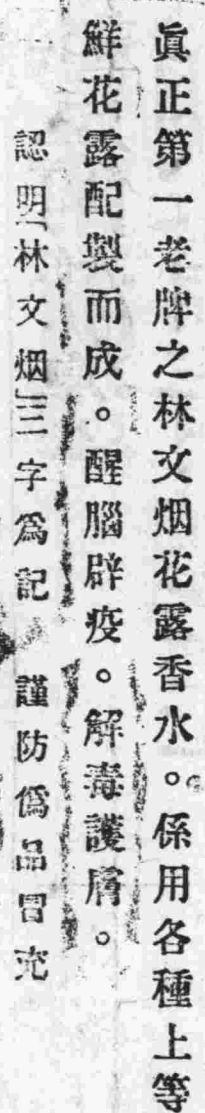 眞正第一老牌之林文烟花露香水。係用各種上等
鮮花露配製而成。醒腦辟疫。解毒護膚。
認明「林文烟」三字爲記　謹防僞品冒充